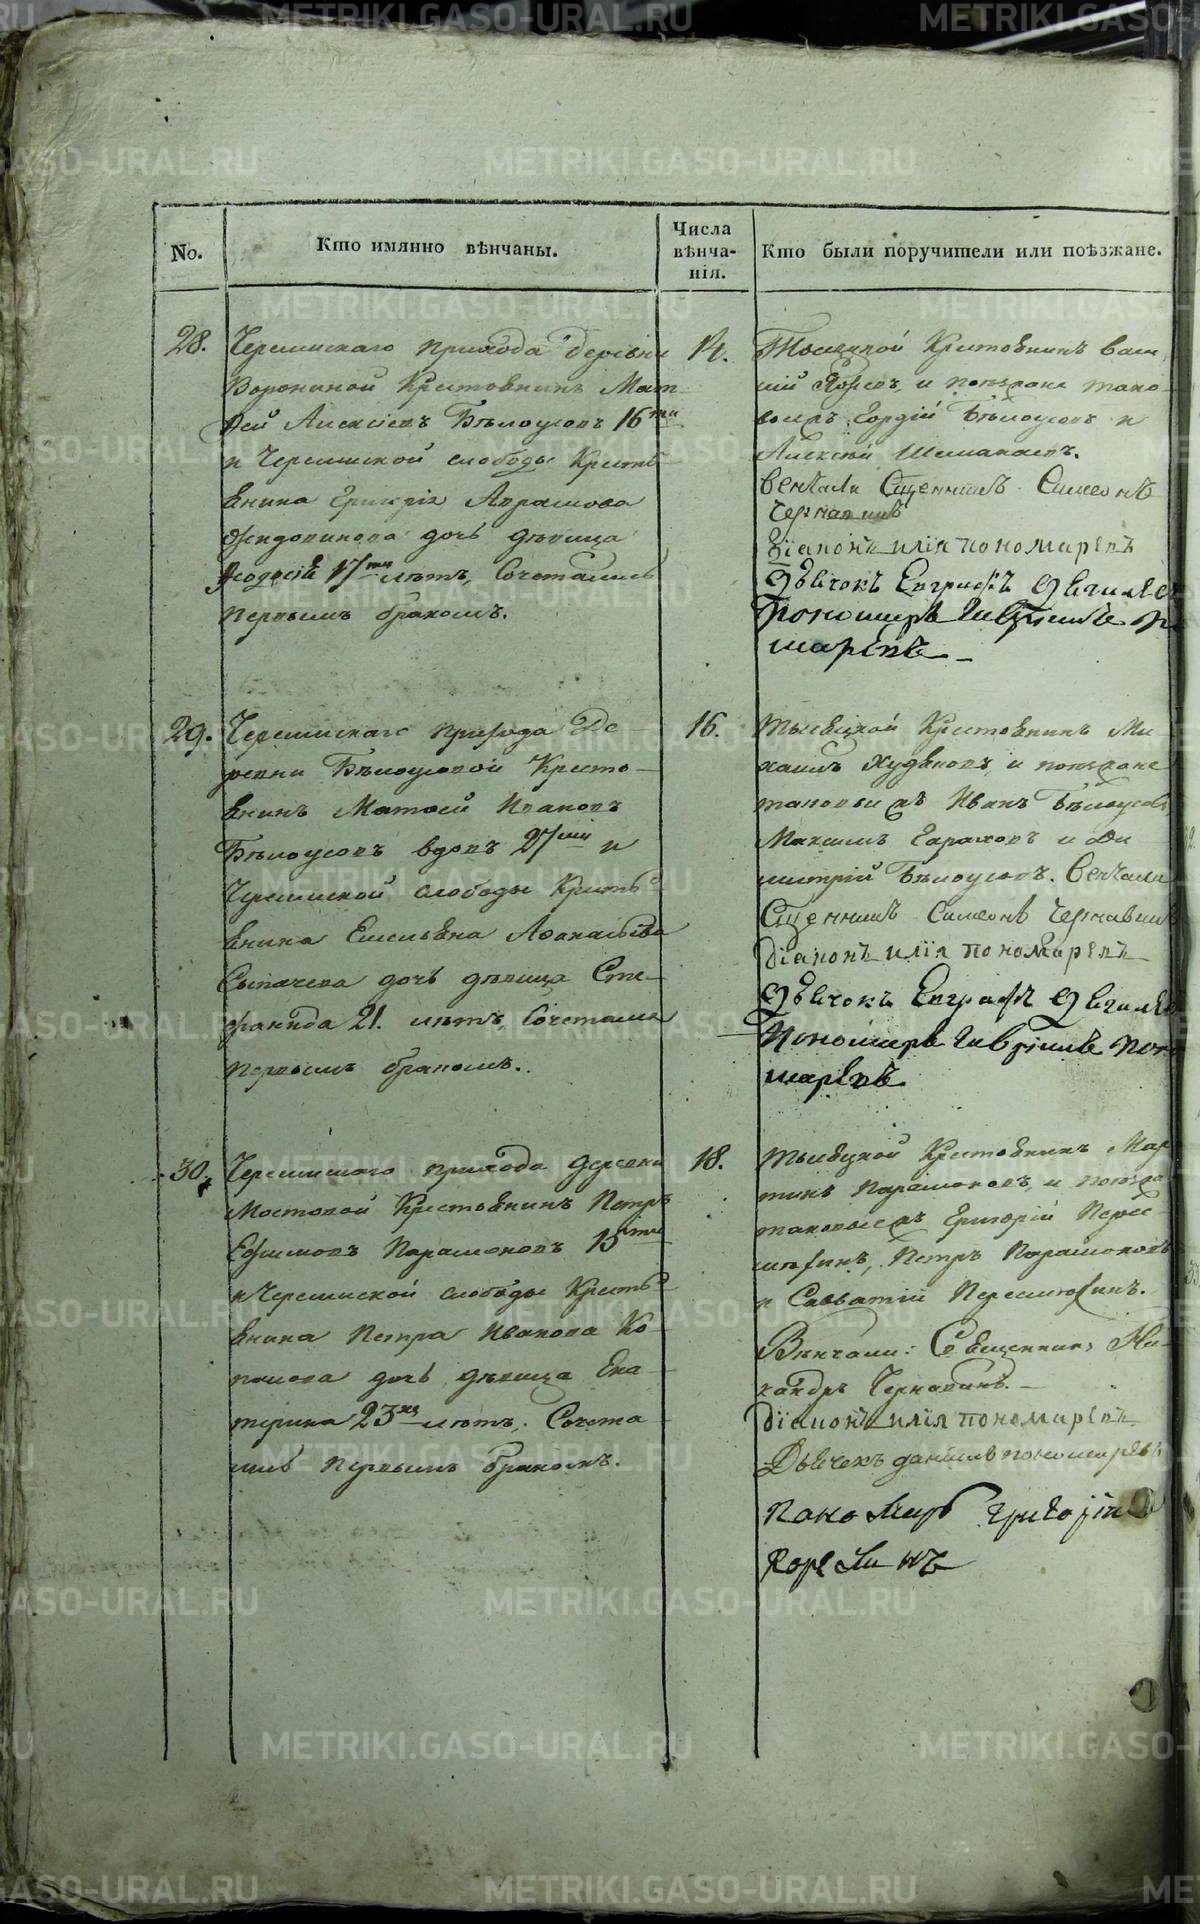 No.
Кто имянно вѣнчаны.
Числа
вѣнча-
нія.
Кто были поручители или поѣзжане.
28.
Черемискаго прихода деревни
Ворониной Крестьянинъ Мат-
фей Алексѣевъ Бѣлоусовъ 16ти
и Черемиской слободы Кресть-
янина Григорія Аврамова
дочь дѣвица
Феодосія 17ти лѣтъ, Сочетались
первымъ бракомъ.
14.
Тысяцкой Крестьянинъ Васи-
лій и поѣзжане тако-
вые къ Гордій Бѣлоусовъ и
Алексѣй
Венчали Сщенникъ Симеонъ
Чернавинъ
Діаконъ илія пономаревъ
Дьячокъ Евграфъ
Пономарь Гавріилъ По
маревъ
29.
Черемискаго прихода Де-
ревни Бѣлоусовой Кресть-
янинъ Матфей Ивановъ
Бѣлоусовъ вдовъ 27ми и
Черемиской слободы Кресть-
янина Емельяна Афанасьева
Сыпачева дочь дѣвица Сте-
фанида 21. лѣтъ, Сочетались
первымъ бракомъ.
16.
Тысяцкой Крестьянинъ Ми-
хаилъ Худяковъ, и поѣзжане
таковые къ Иванъ Бѣлоусовъ,
Максимъ и Ди
митрій Бѣлоусовъ. Венчали
Сщенникъ Симеонъ Чернавинъ
Діаконъ илія пономаревъ
Дьячокъ Евграфъ
Пономарь Гавріилъ Поно
маревъ
30.
Черемискаго прихода деревни
Мостовой Крестьянинъ Петръ
Ефимовъ Парамоновъ 15ти
и Черемиской слободы Кресть-
янина Петра Иванова Ко-
дочь дѣвица Ека-
терина 23хъ лѣтъ, Сочета-
лись первымъ бракомъ.
18.
Тысяцкой Крестьянинъ Мар
тинъ Парамоновъ, и поѣзжа
таковые къ Григорій Пере-
Петръ Парамоновъ
и Савватій
Вѣнчали: Священникъ Ни-
кандръ Чернавинъ.
Діаконъ илія пономаревъ
Дьячекъ даніилъ пономаревъ
Пономарь Григорій
Корелинъ
METRIKI.GASO-URAL.RU